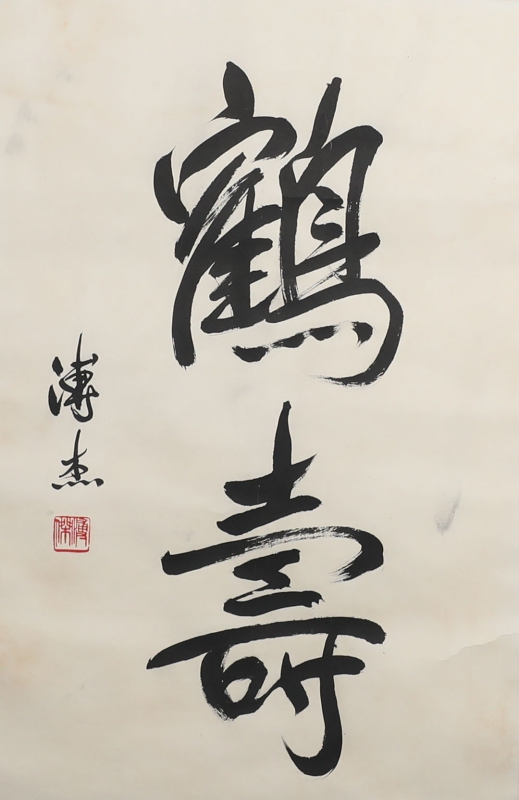 鶴壽
溥杰
溥傑